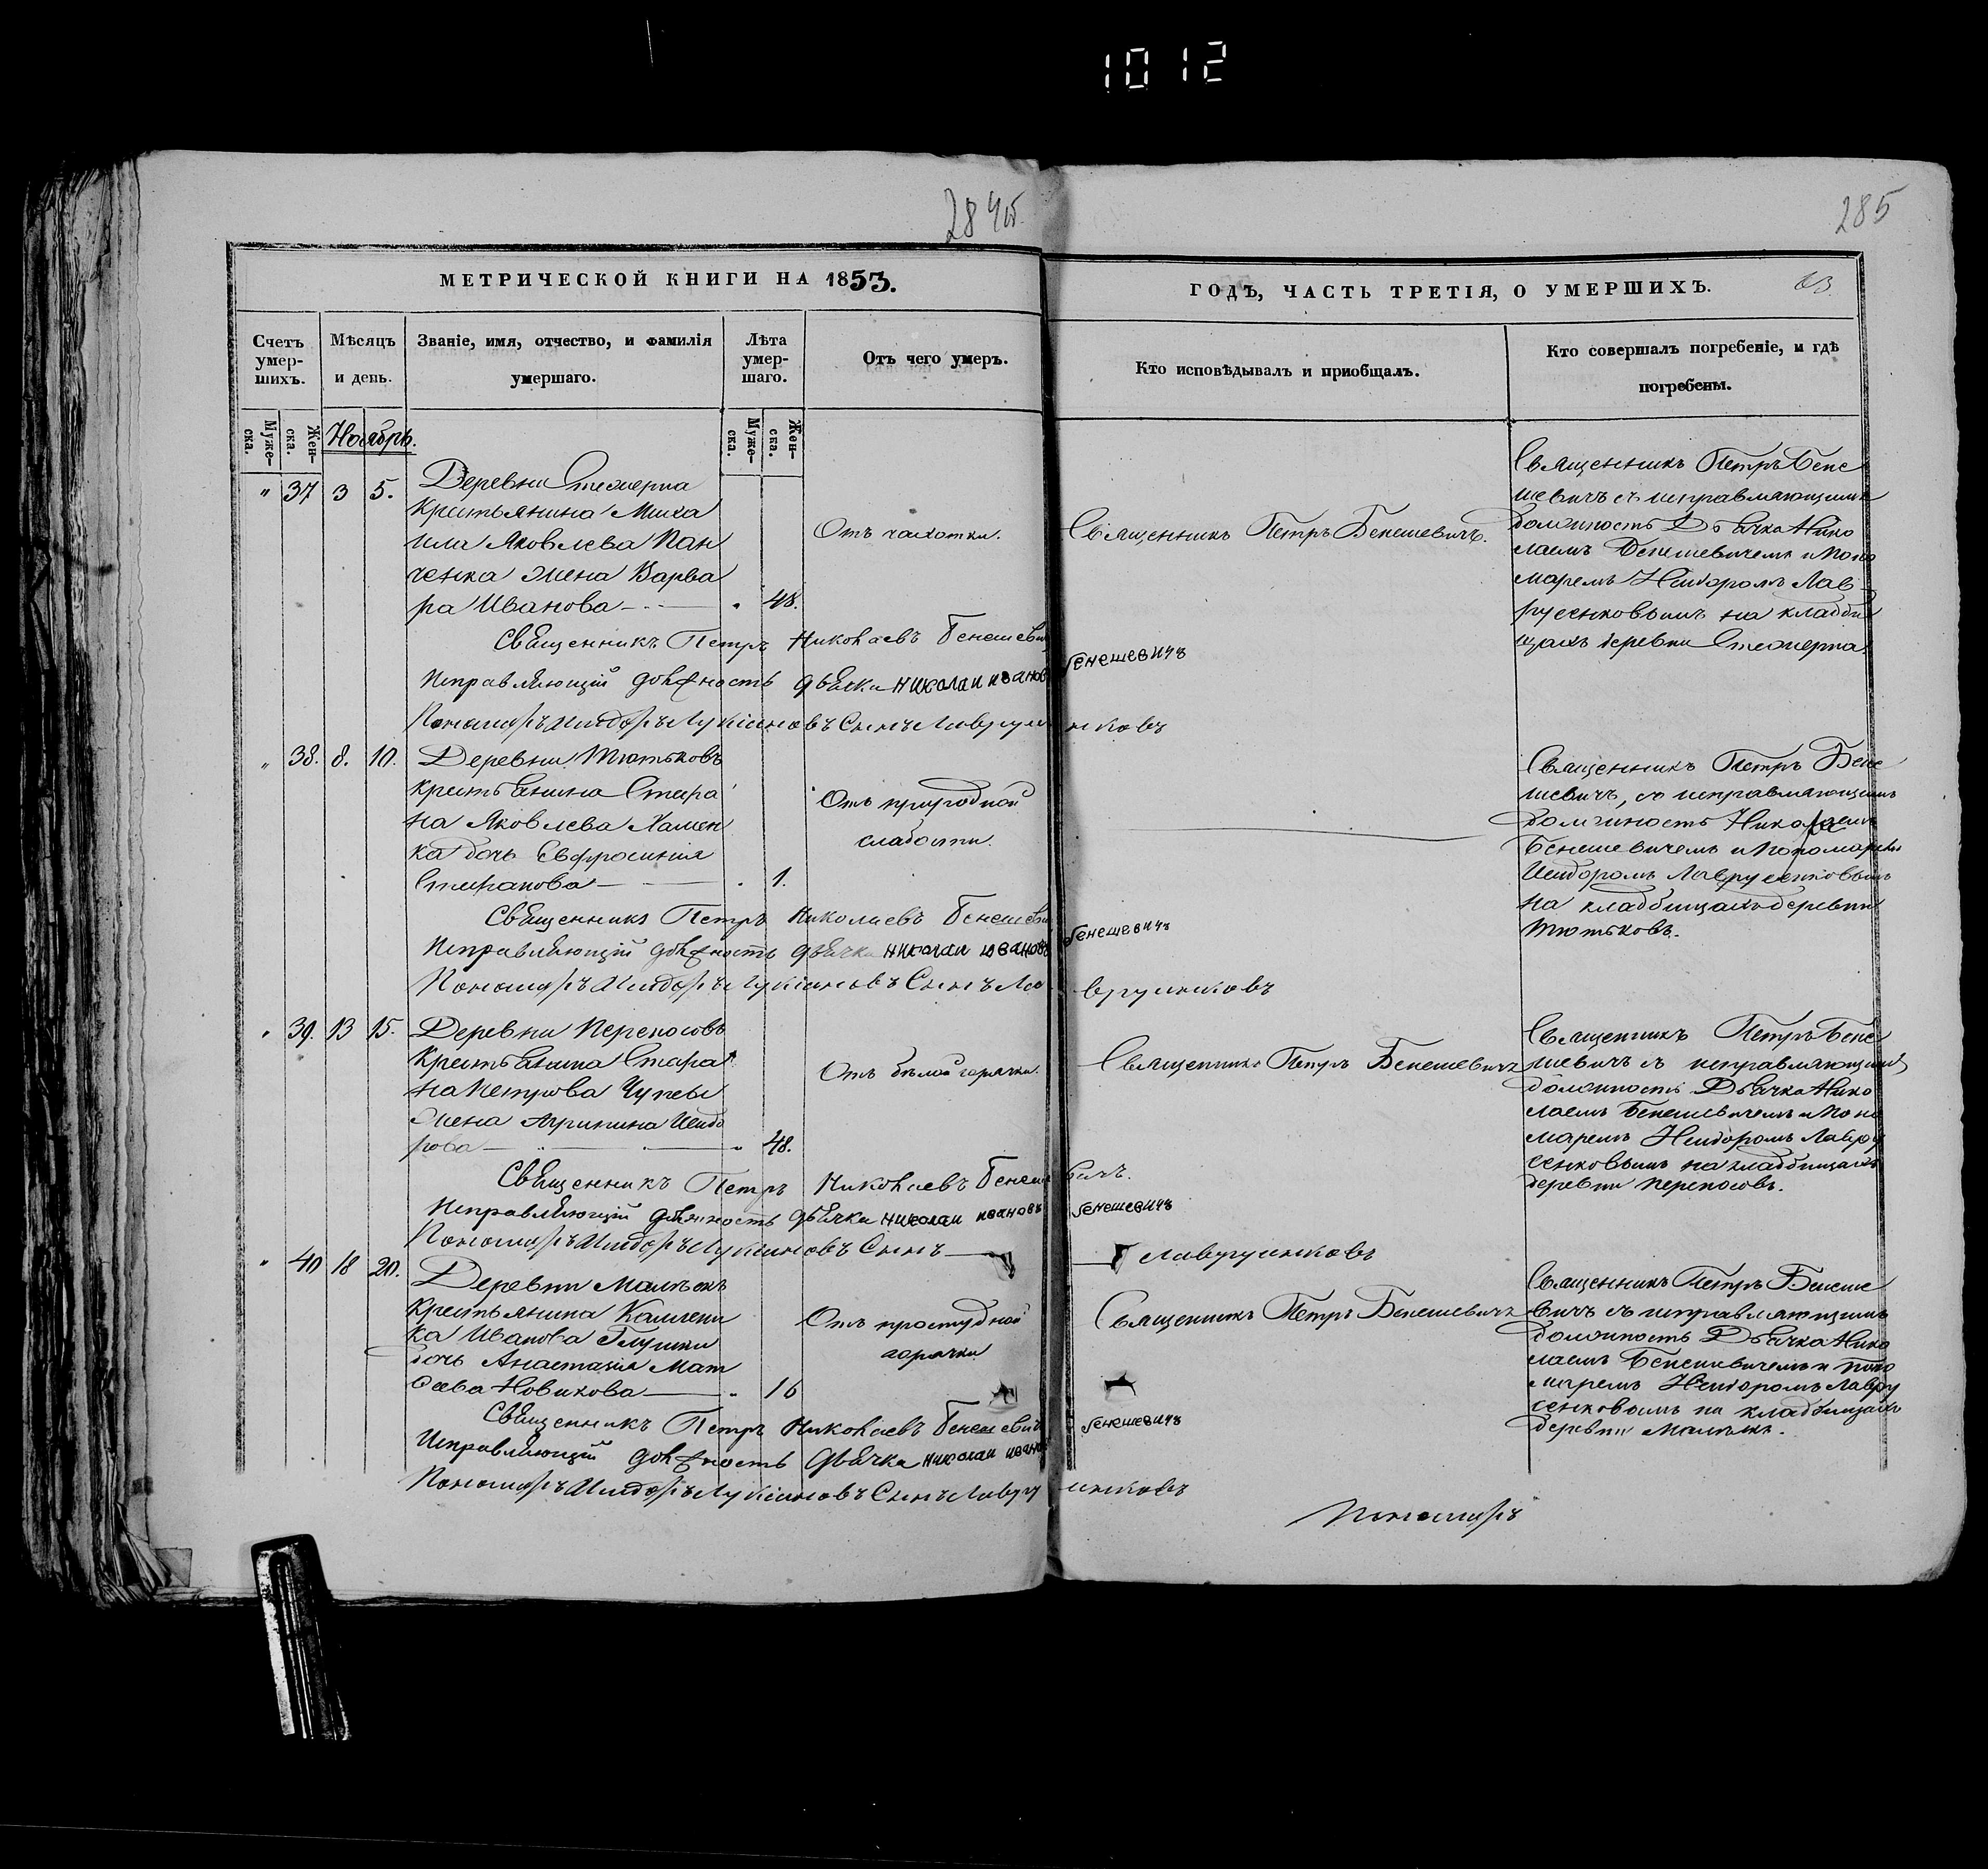 1012
284об
285
МЕТРИЧЕСКОЙ КНИГИ НА 1853.
ГОДЪ, ЧАСТЬ ТРЕТІЯ, О УМЕРШИХЪ.
Счетъ умер-шихъ.
Мѣсяцъ и день.
Званіе, имя, отчество, и фамилія умершаго.
Лѣта умер-шаго.
Отъ чего умеръ.
Кто исповѣдывалъ и пріобщалъ.
Кто совершалъ погребеніе, и гдѣ погребены.
Муже-ска.
Жен-ска.
Ноябрь.
Муже-ска.
Жен-ска.
" 37 3 5.
Деревни
Крестьянина Миха
ила Яковлева Пан
ченка жена Варва
ра Иванова 48.
Отъ чахотки.
Священникъ Петръ Бенешевичъ.
Священникъ Петръ Бене
шевичъ съ исправляющимъ
должность Дьячка Нико
лаемъ Бенешевичемъ и Поно
маремъ Исидоромъ Лав
русенковымъ на кладби
щахъ деревни
Священникъ Петръ Николаевъ Бенешевичъ
Исправляющій должность дьячка Николай Ивановъ Бенешевичъ
Пономарь Исидоръ Лукіановъ Сынъ Лаврусенковъ
" 38. 8. 10.
Деревни Тютьковъ
крестьянина Стефа
на Яковлева Хамен
ка дочь Евфросинія
Стефанова 1.
Отъ природной
слабости.
Священникъ Петръ Бене
шевичъ, съ исправляющимъ
должность Николаемъ
Бенешевичемъ и Пономаремъ
Исидоромъ Лаврусенковымъ
на кладбищахъ деревни
Тютьковъ.
Священникъ Петръ Николаевъ Бенешевичъ
Исправляющій должность дьячка Николай Ивановъ Бенешевичъ
Пономарь Исидоръ Лукіановъ Сынъ Лаврусенковъ
" 39. 13 15.
Деревни Переносовъ
Крестьянина Стефа
на Петрова Чупеы
жена Агрипина Исидо
рова 48.
Отъ бѣлой горячки.
Священникъ Петръ Бенешевичъ
Священникъ Петръ Бене
шевичъ съ исправляющимъ
должность Дьячка Нико
лаемъ Бенешевичемъ и Поно
маремъ Исидоромъ Лавру
сенковымъ на кладбищахъ
деревни Переносовъ.
Священникъ Петръ Николаевъ Бенешевичъ.
Исправляющій должность дьячка Николай Ивановъ Бенешевичъ
Пономарь Исидоръ Лукіановъ Сынъ Лаврусенковъ
" 40 18 20.
Деревни
Крестьянина
Иванова Глушки
дочь Анастасія Мат
Новикова 16
Отъ простудной
горячки
Священникъ Петръ Бенешевичъ
Священникъ Петръ Бенеше
вичъ съ исправляющимъ
должность Дьячка Нико
лаемъ Бенешевичемъ и Поно
маремъ Исидоромъ Лавру
сенковымъ на кладбищахъ
деревни
Священникъ Петръ Николаевъ Бенешевичъ
Исправляющій должность Дьячка Николай Ивановъ Бенешевичъ
Пономарь Исидоръ Лукіановъ Сынъ Лаврусенковъ
Пономарь